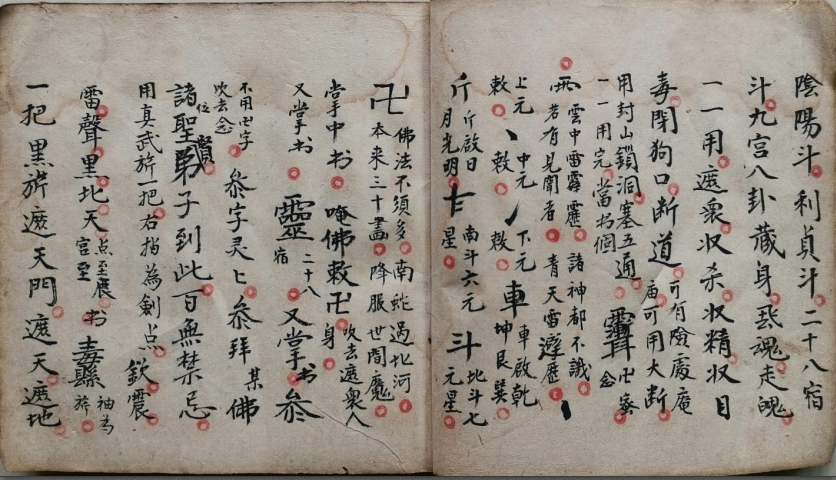 陰陽斗利貞斗二十八宿
斗九宮八卦藏身飛魂走魄
一一用遮衆收杀收精收目
毒閉狗口断道可有險處庵
庙可用大断
用封山鎖洞塞五通
一一用完當书個
卍寮
念
雲中雷霹靂諸神都不識
若有見聞者青天雷
上元
中元
下元
車
車啟乾
敕
敕
敕
坤艮巽
斤
斤啟日
月光明
南斗六元
星
斗
北斗七
元星
卍
佛法不須多南蛇過圠河
本来三十畫降服世間魔
掌中书唵佛敕卍身
吹去遮衆人
又掌书
靈
二十八
宿
又掌书
叅
不用卍字
吹去念
叅字灵匕叅拜
某
佛
諸聖
位
弟子到此百無禁忌
用真武旂一把右指為劍点
欽震
雷聲黑北天
点至展
官至
书
毒縣
袖為
旂
一把黑旂遮天門遮天遮地